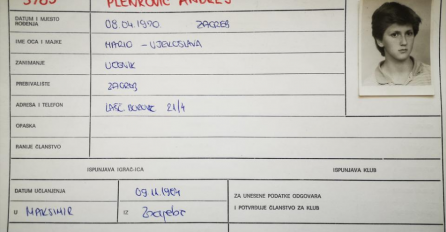 5985 PLENKOVIĆ ANDREJ
DATUM I MJESTO ROĐENJA 08.04.1970. ZAGREB
IME OCA I MAJKE MARIO - VJEKOSLAVA
ZANIMANJE UČENIK
PREBIVALIŠTE ZAGREB
ADRESA I TELEFON 21/4
OPASKA
RANIJE ČLANSTVO
ISPUNJAVA IGRAČ-ICA ISPUNJAVA KLUB
DATUM UČLANJENJA 09 11 1984 ZA UNESENE PODATKE ODGOVARA
U MAKSIMIR IZ Zagreba I POTVRĐUJE ČLANSTVO ZA KLUB